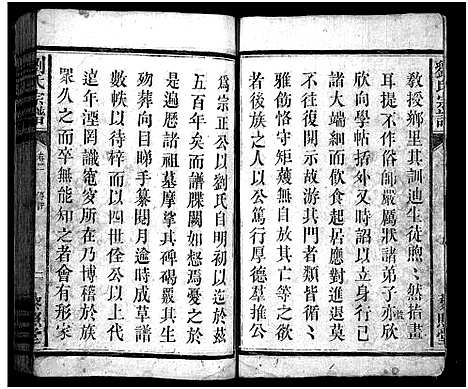 劉氏宗譜
教授鄉里其訓迪生徒煦煦然指畫
耳提不作俗師嚴厲狀諸弟子亦欣
欣向學帖括外又時語以立身行已
諸大端雖飲食起居應對進退莫
不往復開示故游其門者類循循
雅飭恪守矩蒦無敢軼其亡等之欲
者後族人之人以公篤行厚德羣推公
爲宗正公以劉氏自明初以迄於茲
五百年矣而譜牒闕如慼爲憂之於
是遍歷諸祖墓摩挲其碑碣覈其生
歿葬向目睇手纂閱月逾時成草譜
數帙以待梓而以四世佺公以上代
遠年湮罔識窀穸所在乃博稽於族
衆久之而卒無能知之者會有形家
劉氏宗譜
卷一